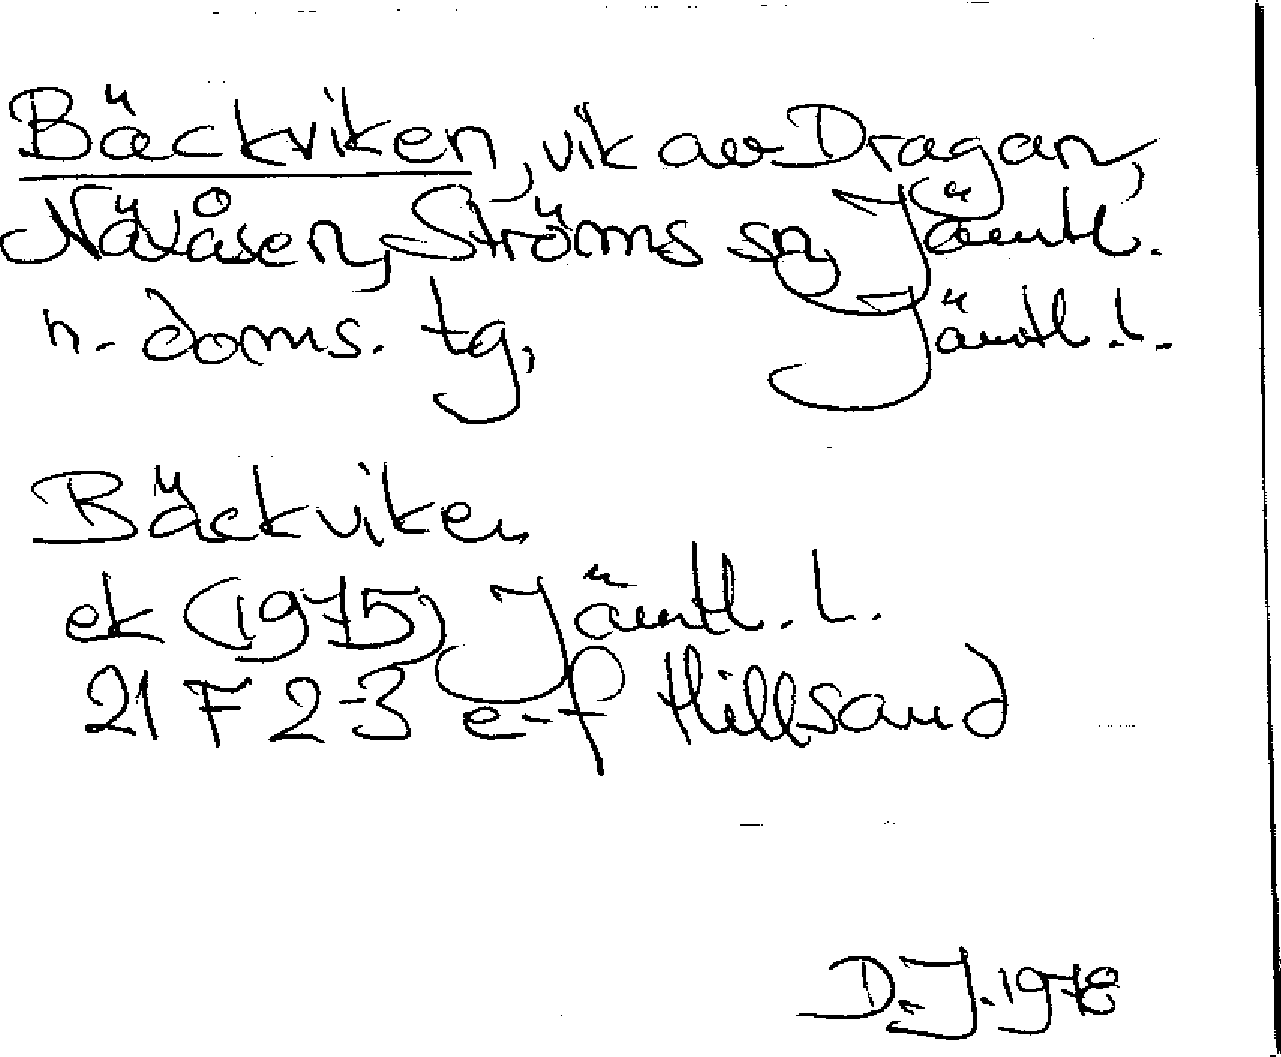 Bäckviken, vik av Dragan,
Näxåsen, Ströms sn, Jämtl.
n. doms. tg, Jämtl. l.
Bäckviken
ek (1975) Jämtl. l.
21 F 2-3 e-f Hillsand
D. J. 1978